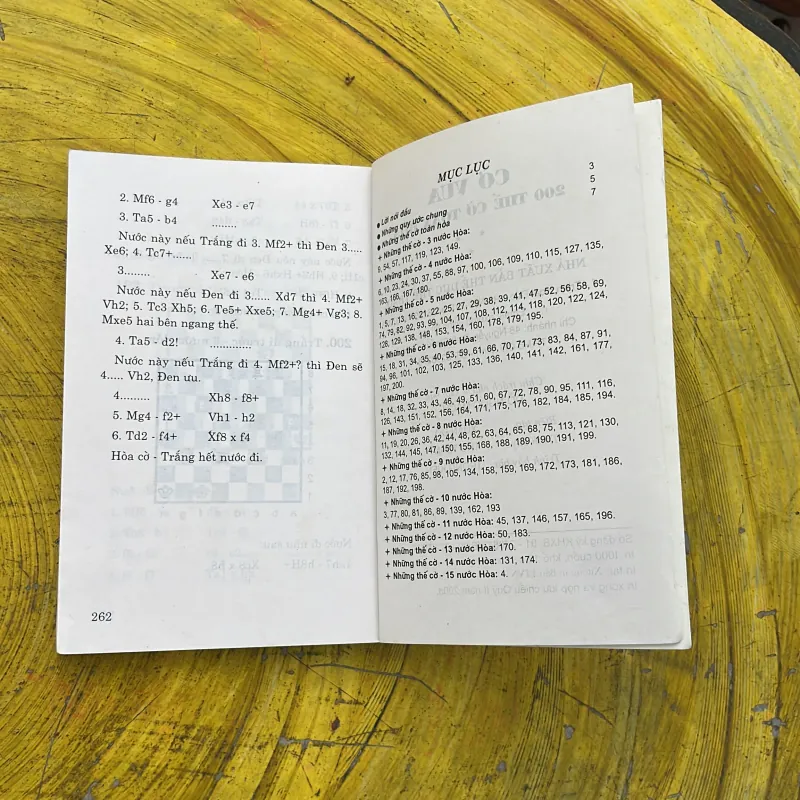 2. Mf6 - g4 Xe3 - e7
3. Ta5 - b4 ........
Nước này nếu Trắng đi 3. Mf2+ thì Đen 3.....
Xe6; 4. Tc7+......
3........ Xe7 - e6
Nước này nếu Đen đi 3...... Xd7 thì 4. Mf2+
Vh2; 5. Tc3 Xh5; 6. Te5+ Xxe5; 7. Mg4+ Vg3; 8.
Mxe5 hai bên ngang thế.
4. Ta5 - d2! .............
Nước này nếu Trắng đi 4. Mf2+? thì Đen sẽ
4..... Vh2, Đen ưu.
4......... Xh8 - f8+
5. Mg4 - f2+ Vh1 - h2
6. Td2 - f4+ Xf8 x f4
Hòa cờ - Trắng hết nước đi.
262
MỤC LỤC
● Lời nói đầu 3
● Những quy ước chung 5
● Những thế cờ toàn hòa 7
+ Những thế cờ - 3 nước Hòa:
9, 54, 57, 117, 119, 123, 149.
+ Những thế cờ - 4 nước Hòa:
6, 10, 23, 24, 30, 37, 55, 88, 97, 100, 106, 109, 110, 115, 127, 135,
163, 166, 167, 180.
+ Những thế cờ - 5 nước Hòa:
1, 5, 7, 13, 16, 21, 22, 25, 27, 29, 38, 39, 41, 47, 52, 56, 58, 69,
74, 79, 82, 92, 93, 99, 104, 107, 108, 112, 114, 118, 120, 122, 124,
128, 129, 138, 148, 153, 154, 160, 178, 179, 195.
+ Những thế cờ - 6 nước Hòa:
15, 18, 31, 34, 35, 40, 53, 59, 61, 66, 70, 71, 73, 83, 84, 87, 91,
94, 96, 101, 102, 103, 125, 133, 136, 140, 141, 142, 161, 177,
197, 200.
+ Những thế cờ - 7 nước Hòa:
8, 14, 18, 32, 33, 43, 46, 49, 51, 60, 67, 72, 78, 90, 95, 111, 116,
126, 143, 151, 152, 156, 164, 171, 175, 176, 182, 184, 185, 194.
+ Những thế cờ - 8 nước Hòa:
11, 19, 20, 26, 36, 42, 44, 48, 62, 63, 64, 65, 68, 75, 113, 121, 130,
132, 144, 145, 147, 150, 155, 168, 188, 189, 190, 191, 199.
+ Những thế cờ - 9 nước Hòa:
2, 12, 17, 76, 85, 98, 105, 134, 158, 159, 169, 172, 173, 181, 186,
187, 192, 198.
+ Những thế cờ - 10 nước Hòa:
3, 77, 80, 81, 86, 89, 139, 162, 193
+ Những thế cờ - 11 nước Hòa: 45, 137, 146, 157, 165, 196.
+ Những thế cờ - 12 nước Hòa: 50, 183.
+ Những thế cờ - 13 nước Hòa: 170.
+ Những thế cờ - 14 nước Hòa: 131, 174.
+ Những thế cờ - 15 nước Hòa: 4.